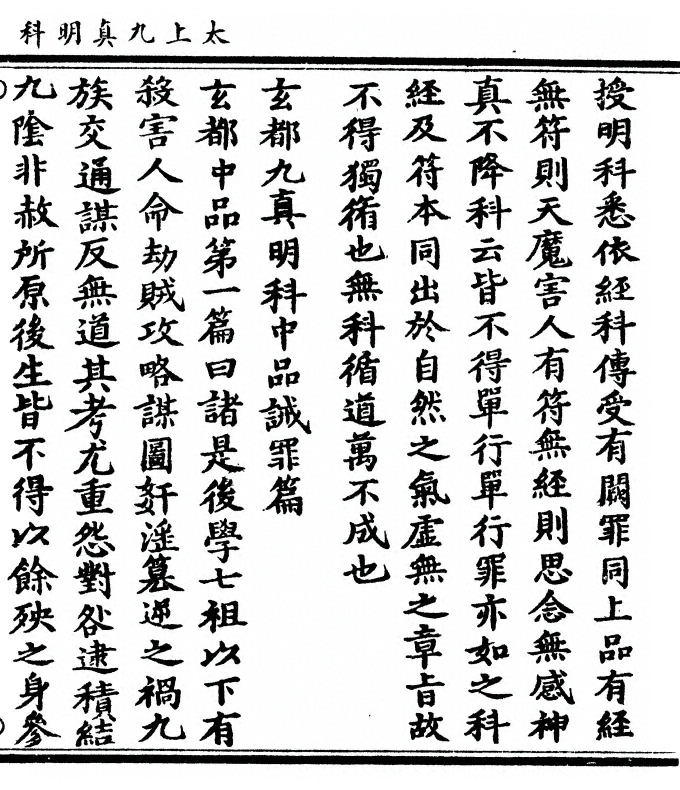 太上九真明科
授明科悉依經科傳受有闕罪同上品有經
無符則天魔害人有符無經則思念無感神
真不降科云皆不得單行單行罪亦如之科
經及符本同出於自然之氣虛無之章旨故
不得獨脩也無科循道萬不成也
玄都九真明科中品誡罪篇
玄都中品第一篇曰諸是後學七祖以下有
殺害人命劫賊攻略謀圖姧淫篡逆之禍九
族交通謀反無道其考尤重怨對咎逮積結
九陰非赦所原後生皆不得以餘殃之身參